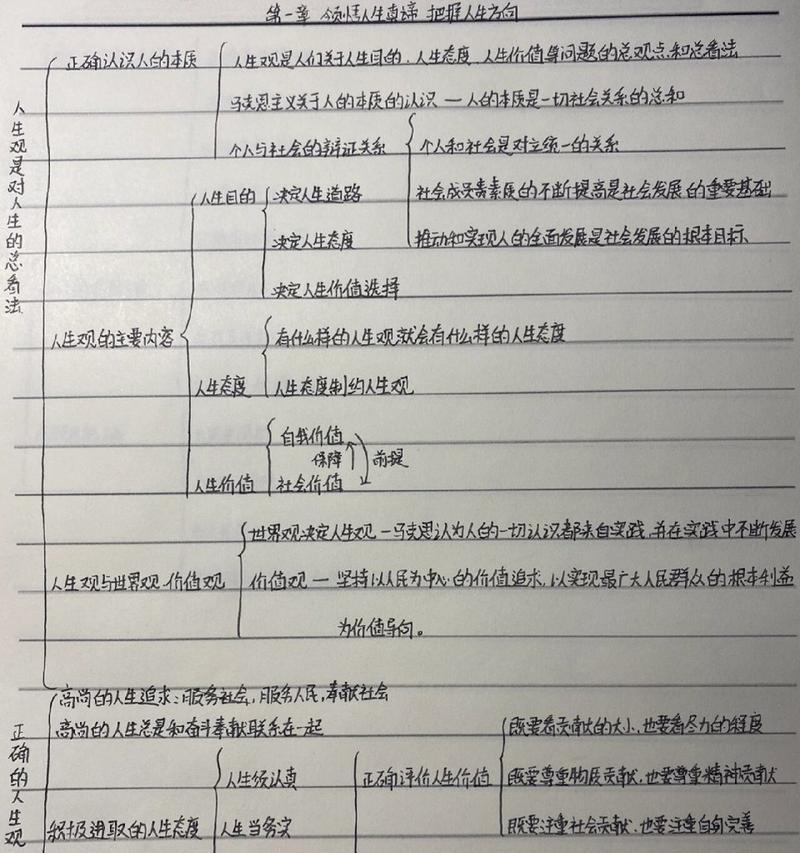 第一章 领悟人生真谛 把握人生方向
人生观是对人生的总看法
正确认识人的本质
人生观是人们关于人生目的、人生态度、人生价值等问题的总观点和总看法
马克思主义关于人的本质的认识 — 人的本质是一切社会关系的总和
个人与社会的辩证关系
个人和社会是对立统一的关系
社会成员素质的不断提高是社会发展的重要基础
推动和实现人的全面发展是社会发展的根本目标
人生观的主要内容
人生目的
决定人生道路
决定人生态度
决定人生价值选择
人生态度
有什么样的人生观就会有什么样的人生态度
人生态度制约人生观
人生价值
自我价值
保障 前提
社会价值
人生观与世界观 价值观
世界观决定人生观 — 马克思认为人的一切认识都来自实践,并在实践中不断发展
价值观 — 坚持以人民为中心的价值追求,以实现最广大人民群众的根本利益
为价值导向。
正确的人生观
高尚的人生追求:服务社会,服务人民,奉献社会
高尚的人生总是和奋斗奉献联系在一起
积极进取的人生态度
人生须认真
人生当务实
正确评价人生价值
既要看贡献的大小,也要看尽力的程度
既要尊重物质贡献,也要尊重精神贡献
既要注重社会贡献,也要注重自身完善